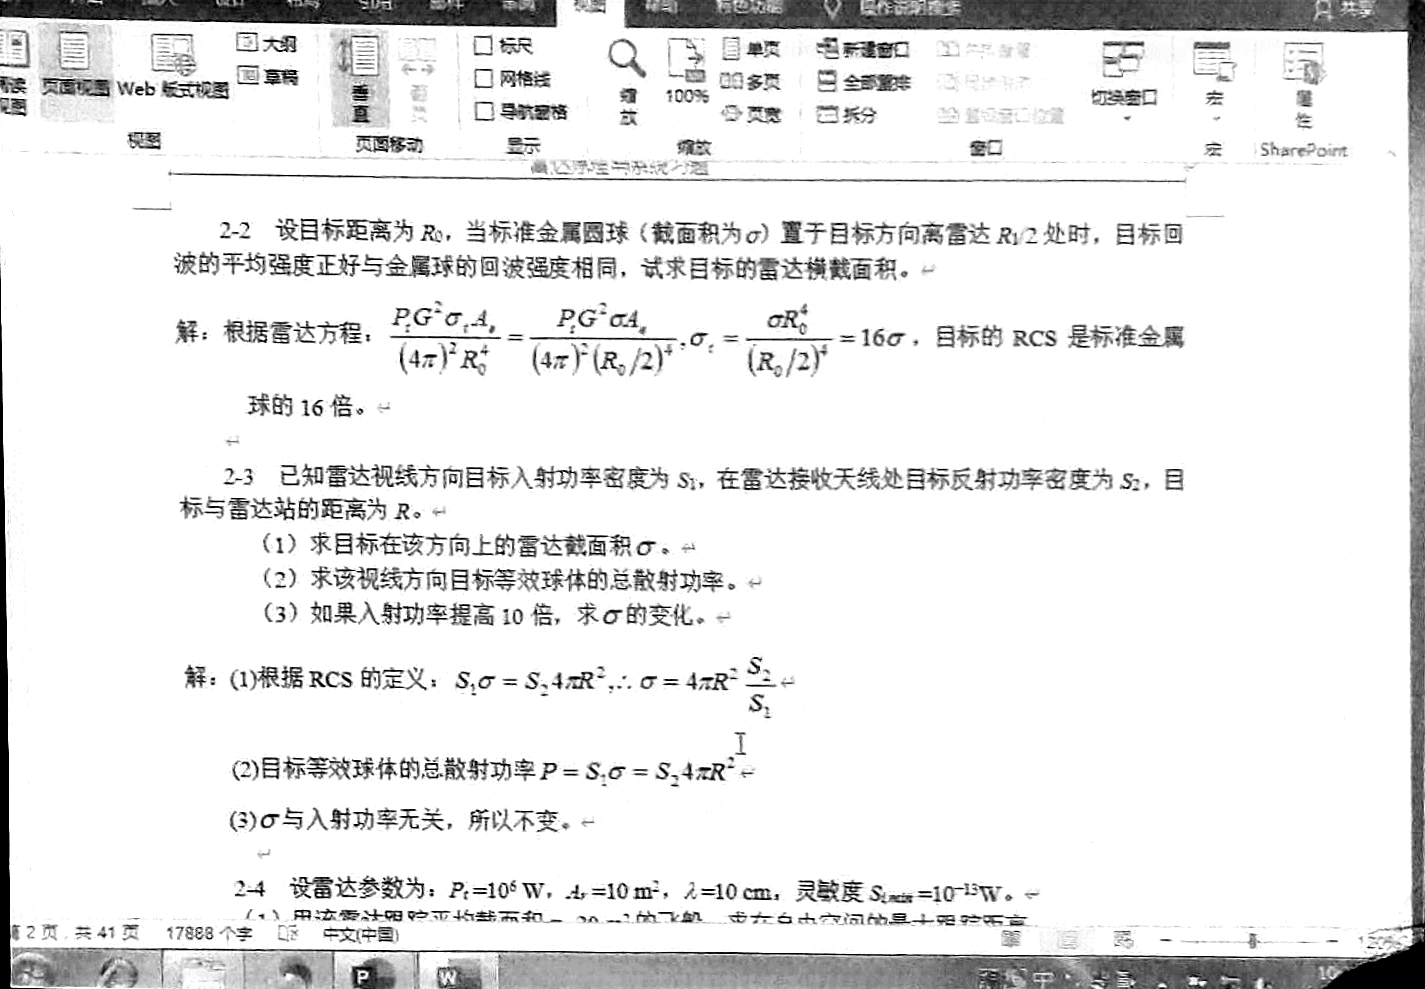 共享
大纲
标尺
单页
新建窗口
网格线
多页
全部重排
草稿
页面视图
Web 版式视图
垂
直
缩
放
100%
切换窗口
宏
属
性
导航窗格
页宽
拆分
视图
页面移动
显示
缩放
窗口
宏
SharePoint
雷达原理与系统习题
2-2 设目标距离为 R₀，当标准金属圆球（截面积为σ）置于目标方向离雷达 R₁/2 处时，目标回
波的平均强度正好与金属球的回波强度相同，试求目标的雷达横截面积。
解：根据雷达方程：P_tG²σ_tA_e/((4π)²R₀⁴) = P_tG²σA_e/((4π)²(R₀/2)⁴), σ_t = σR₀⁴/(R₀/2)⁴ = 16σ，目标的 RCS 是标准金属
球的 16 倍。
2-3 已知雷达视线方向目标入射功率密度为 S₁，在雷达接收天线处目标反射功率密度为 S₂，目
标与雷达站的距离为 R。
（1）求目标在该方向上的雷达截面积σ。
（2）求该视线方向目标等效球体的总散射功率。
（3）如果入射功率提高 10 倍，求σ的变化。
解：(1)根据 RCS 的定义：S₁σ = S₂4πR²,∴ σ = 4πR² S₂/S₁
(2)目标等效球体的总散射功率 P = S₁σ = S₂4πR²
(3)σ与入射功率无关，所以不变。
2-4 设雷达参数为：Pₜ=10⁶ W，Aᵣ=10 m²，λ=10 cm，灵敏度 S_imin=10⁻¹³W。
第 2 页，共 41 页 17888 个字 中文(中国)
P W 中